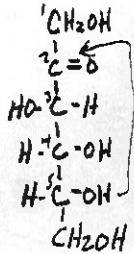 ¹CH₂OH
²C=O
HO-³C-H
H-⁴C-OH
H-⁵C-OH
CH₂OH